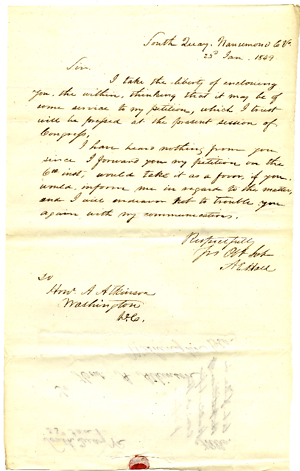 South Quay, Nansemond Co Va
23d Jan. 1849
Sir.
I take the liberty of enclosing
you, the within, thinking that it may be of
some service to my petition, which I trust
will be passed at the present session of
Congress,
I have heard nothing from you
since I forward you my petition on the
6th inst; would take it as a favor, if you
would inform me in regard to the matter,
and I will endeavor not to trouble you
again with my communications.
Respectfully
Yrs Obt
To
Honl A Atkinson
Washington